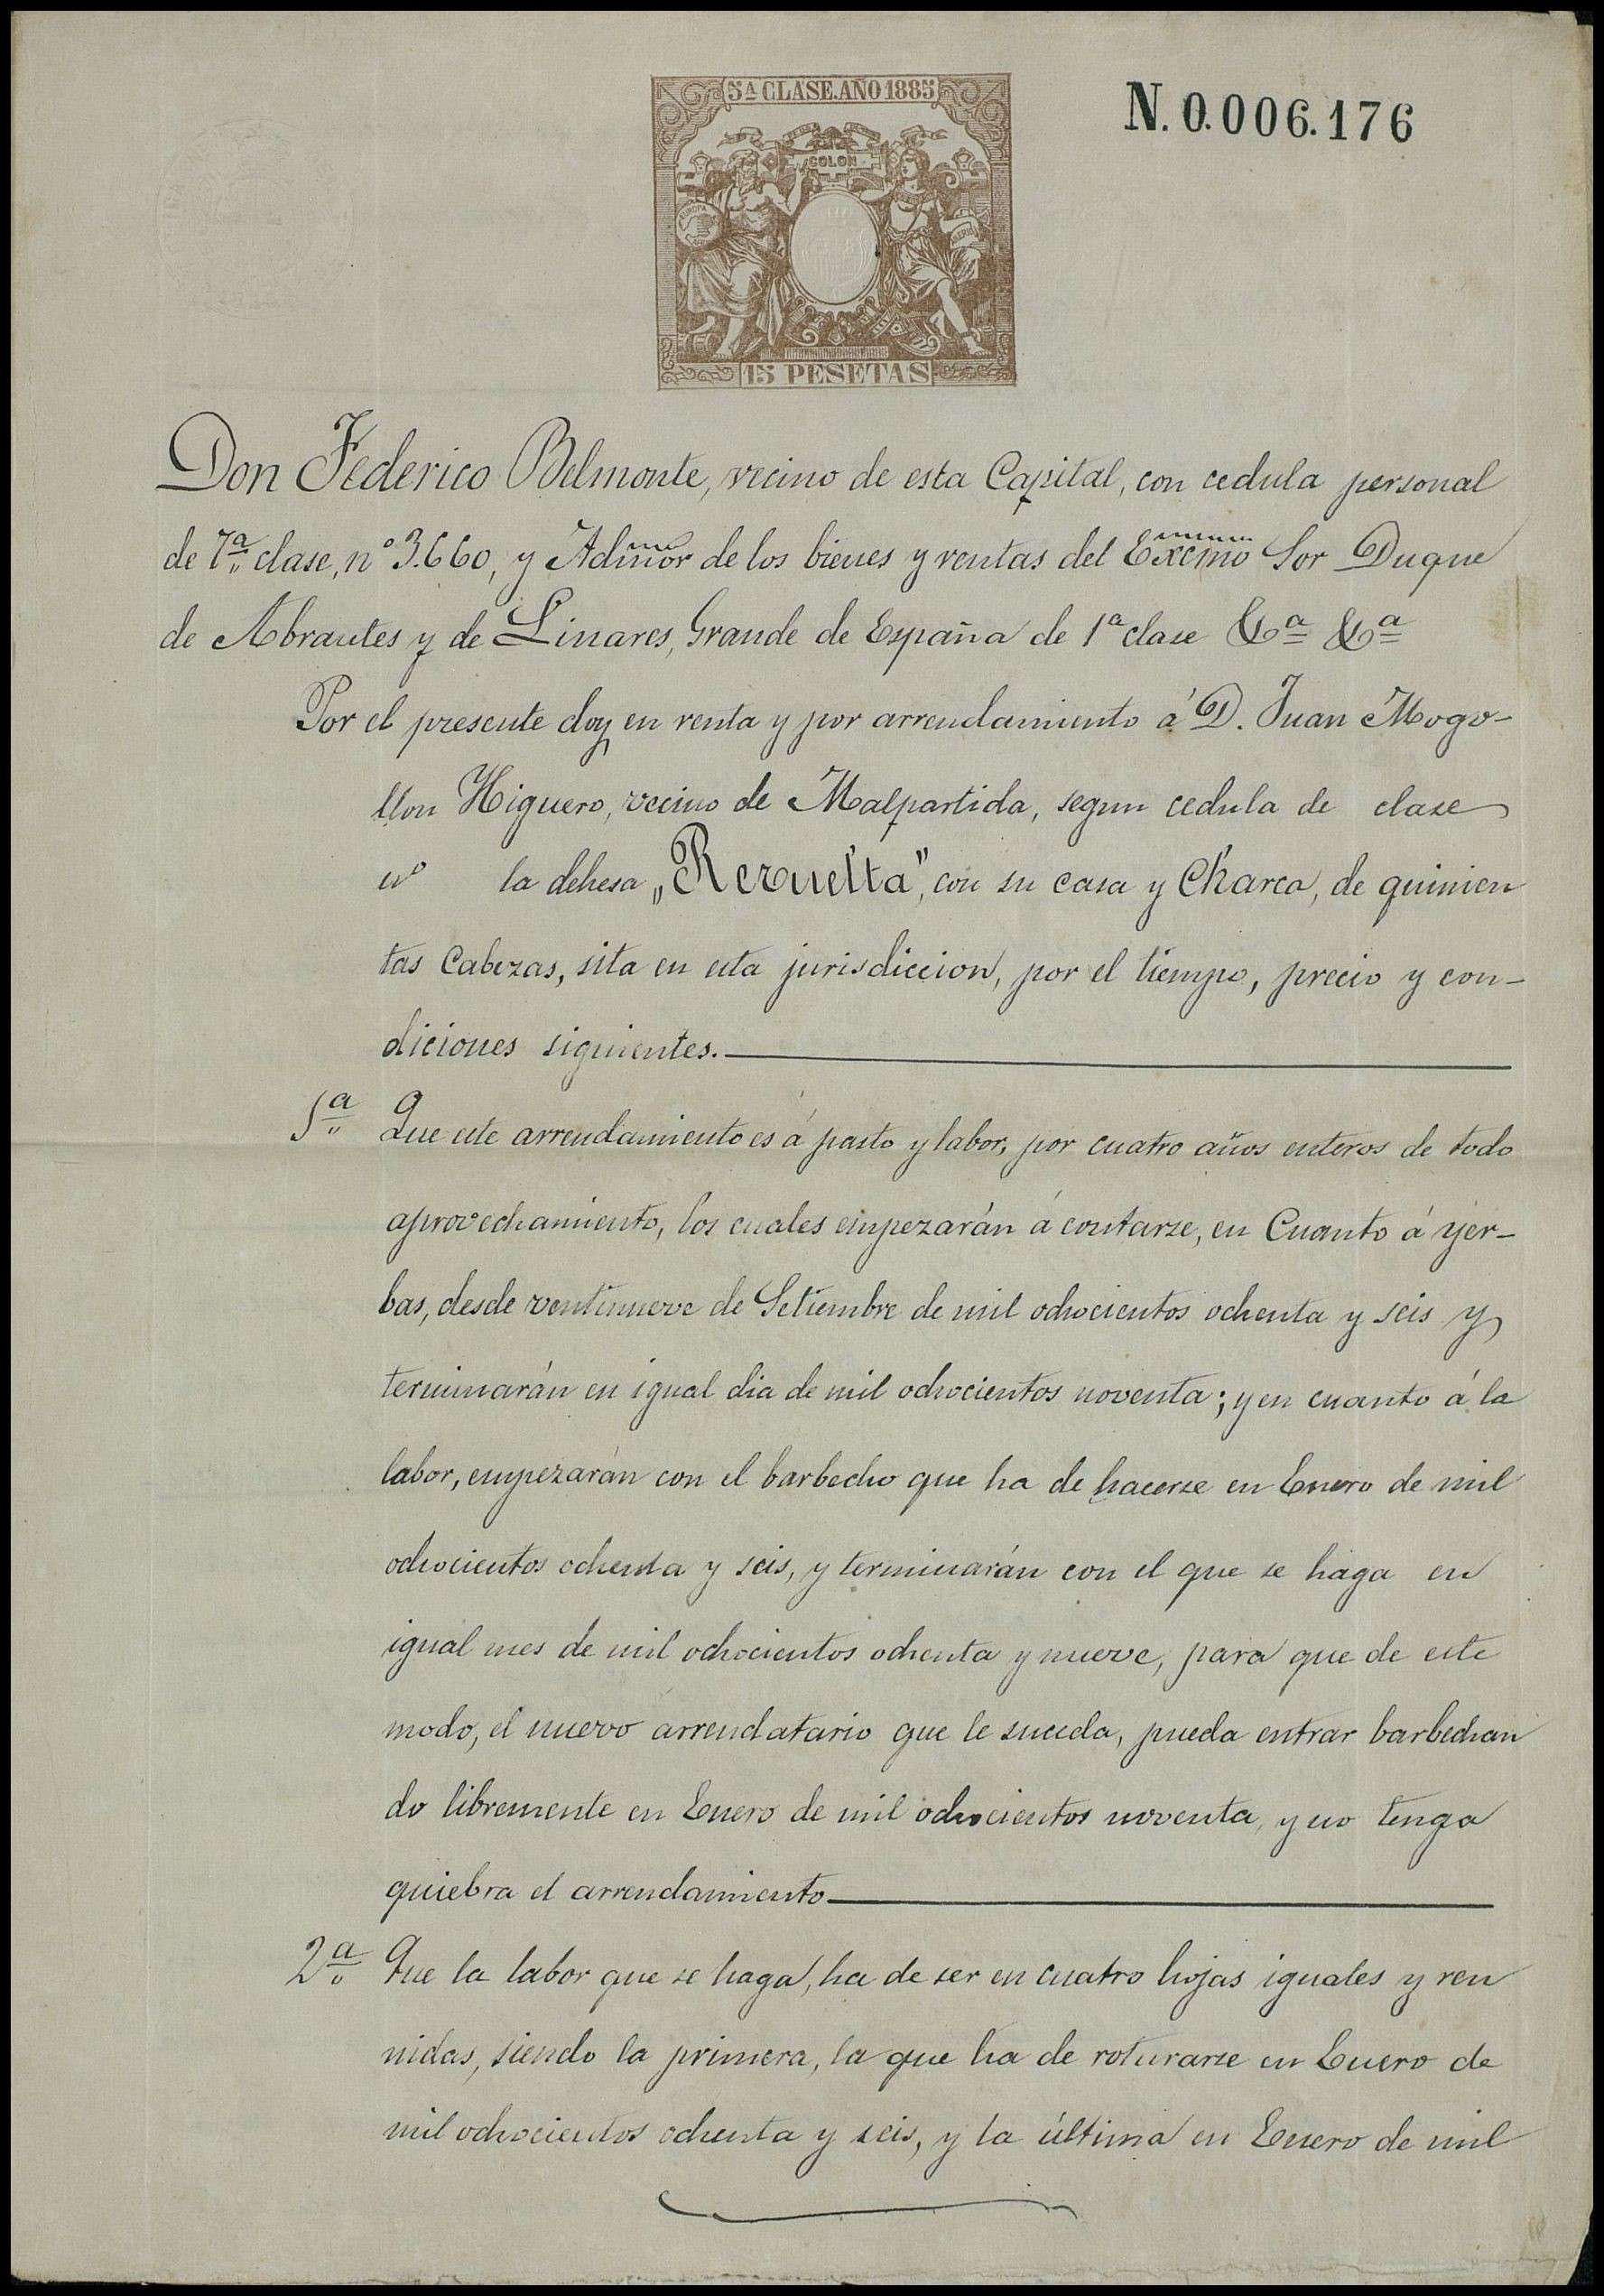 5ª CLASE. AÑO 1885
N. 0.006.176
COLON
15 PESETAS
Don Federico Belmonte, vecino de esta Capital, con cedula personal
de 7ª clase, nº 3.660, y Admor de los bienes y rentas del Excmo Sor Duque
de Abrantes y de Linares, Grande de España de 1ª clase &ª &ª
Por el presente doy en renta y por arrendamiento á D. Juan Mogo-
llon Higuero, vecino de Malpartida, segun cedula de clase
nº la dehesa „Rezuelta", con su casa y Charca, de quinien
tas Cabezas, sita en esta jurisdiccion, por el tiempo, precio y con-
diciones siguientes.
1ª Que este arrendamiento es á pasto y labor, por cuatro años enteros de todo
aprovechamiento, los cuales empezarán á contarse, en Cuanto á yer-
bas, desde ventinueve de Setiembre de mil ochocientos ochenta y seis y
terminarán en igual dia de mil ochocientos noventa; y en cuanto á la
labor, empezarán con el barbecho que ha de hacerse en Enero de mil
ochocientos ochenta y seis, y terminarán con el que se haga en
igual mes de mil ochocientos ochenta y nueve, para que de este
modo, el nuevo arrendatario que le suceda, pueda entrar barbechan
do libremente en Enero de mil ochocientos noventa, y no tenga
quiebra el arrendamiento
2ª Que la labor que se haga, ha de ser en cuatro hojas iguales y reu
nidas, siendo la primera, la que ha de roturarse en Enero de
mil ochocientos ochenta y seis, y la última en Enero de mil